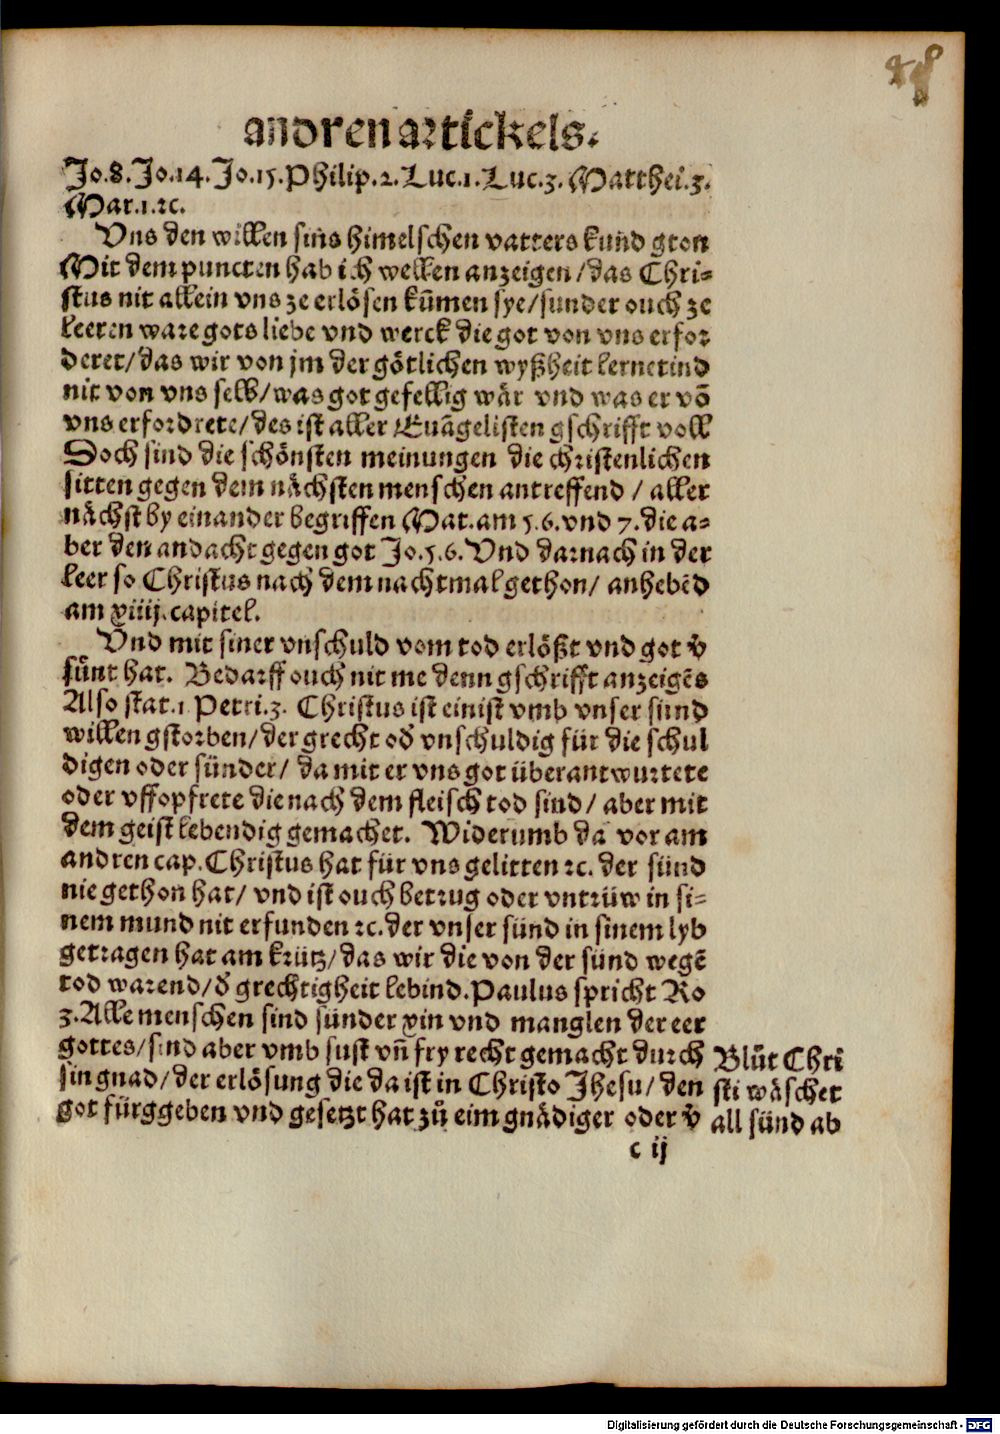 andren artickels.
Jo.8.Jo.14.Jo.15.Philip.2.Luc.1.Luc.3.Matthei.3.
Mar.1.ꝛc.
Vns den willen sins himelschen vatters kund gton
Mit dem puncten hab ich wellen anzeigen/das Chri-
stus nit allein vns ze erlösen kūmen sye/sunder ouch ze
leeren ware gots liebe vnd werck die got von vns erfor
deret/das wir von jm der götlichen wyßheit lernetind
nit von vns selb/was got gefellig wär vnd was er vō
vns erfordrete/des ist aller Euāgelisten gschrifft voll
Doch sind die schönsten meinungen die christenlichen
sitten gegen dem nächsten menschen antreffend / aller
nächst by einander begriffen Mat.am 5.6.vnd 7.die a-
ber den andacht gegen got Jo.5.6.Vnd darnach in der
leer so Christus nach dem nachtmal gethon/ anhebēd
am xiiij.capitel.
Vnd mit siner vnschuld vom tod erlößt vnd got v̄
sünt hat. Bedarff ouch nit me denn gschrifft anzeigēs
Also stat.1 Petri.3. Christus ist einist vmb vnser sünd
willen gstorben/der grecht od̄ vnschuldig für die schul
digen oder sünder/ da mit er vns got überantwurtete
oder vffopfrete die nach dem fleisch tod sind/ aber mit
dem geist lebendig gemachet. Widerumb da vor am
andren cap.Christus hat für vns gelitten ꝛc. der sünd
nie gethon hat/ vnd ist ouch betrug oder vntrüw in si-
nem mund nit erfunden ꝛc.der vnser sünd in sinem lyb
getragen hat am krütz/das wir die von der sünd wegē
tod warend/d̄ grechtigheit lebind.Paulus spricht Ro
3.Alle menschen sind sünder xin vnd manglen der eer
gottes/sind aber vmb sust vn̄ fry recht gemacht durch
sin gnad/der erlösung die da ist in Christo Jhesu/ den
got fürggeben vnd gesetzt hat zů eim gnädiger oder v̄
Blůt Chri
sti wäschet
all sünd ab
c ij
Digitalisierung gefördert durch die Deutsche Forschungsgemeinschaft - DFG